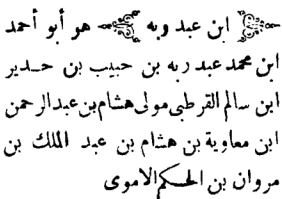 ابن عبد ربه هو أبو أحمد
ابن محمد عبد ربه بن حبيب بن حدير
ابن سالم القرطبي مولى هشام بن عبد الرحمن
ابن معاوية بن هشام بن عبد الملك بن
مروان بن الحكم الاموى